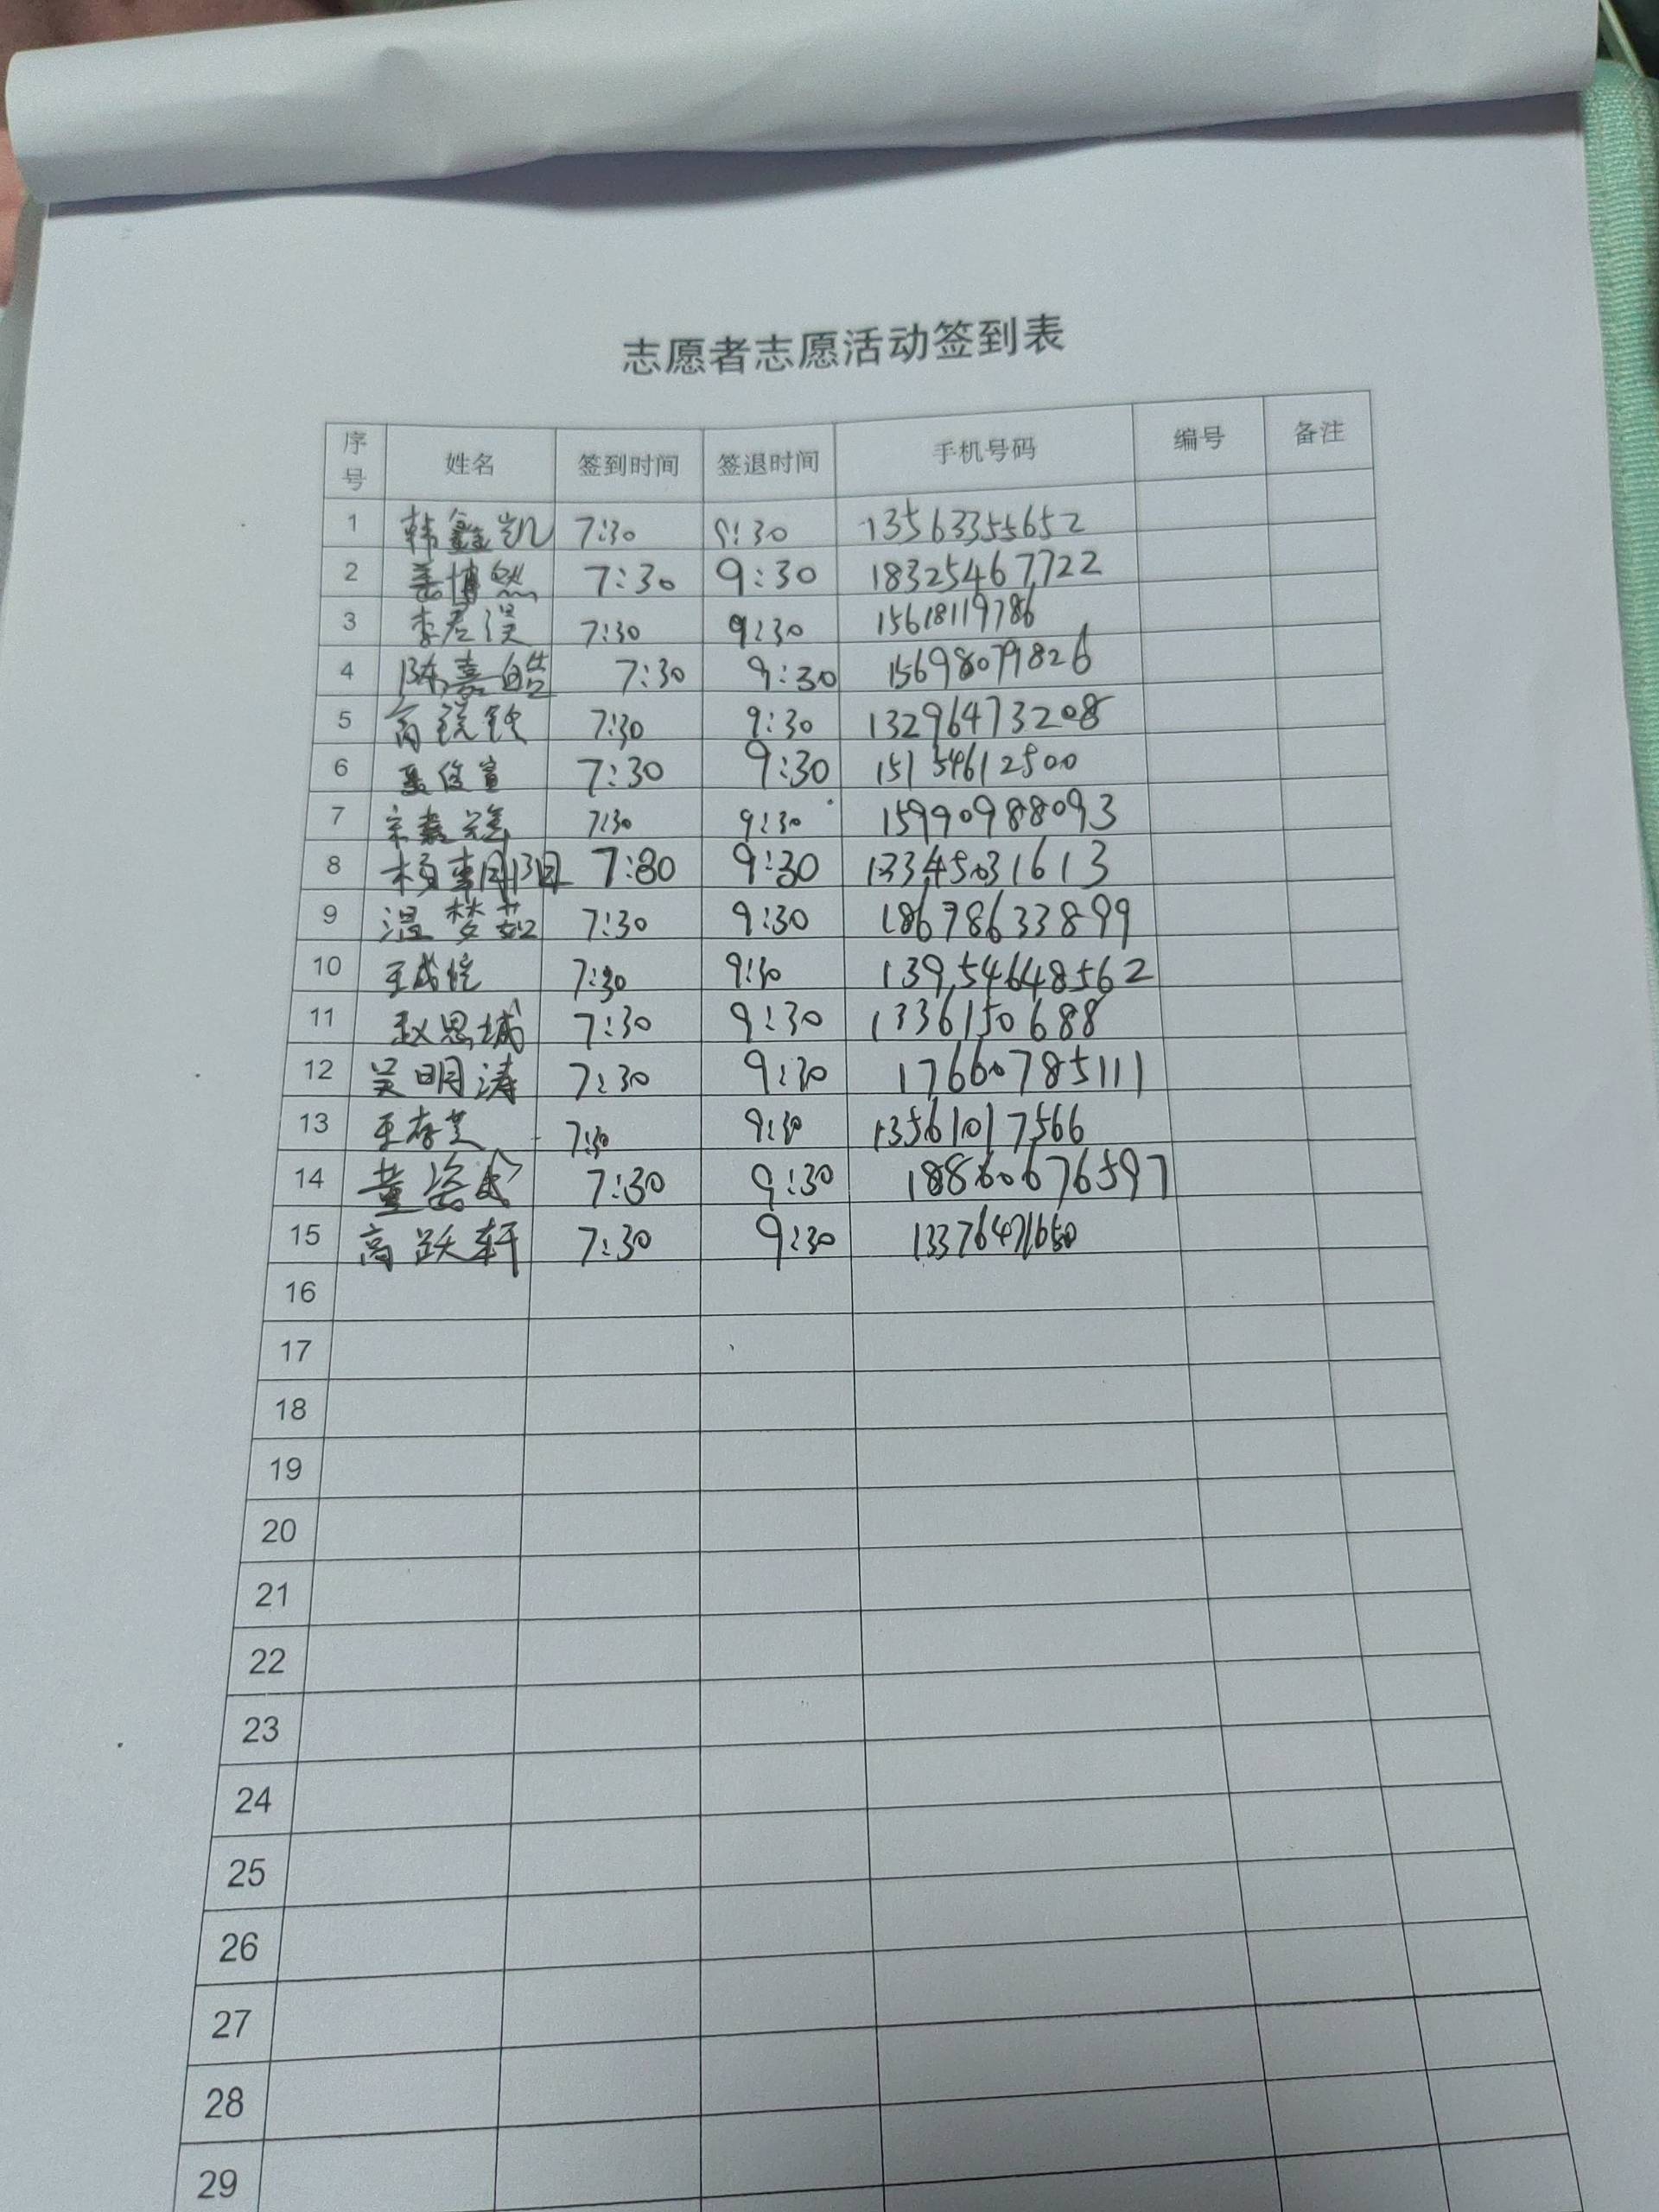 志愿者志愿活动签到表
序号 姓名 签到时间 签退时间 手机号码 编号 备注
1 韩鑫凯 7:30 9:30 13563355652
2 姜博然 7:30 9:30 18325467722
3 7:30 9:30 15618119786
4 陈嘉皓 7:30 9:30 15698079826
5 7:30 9:30 13296473208
6 7:30 9:30 15154612500
7 7:30 9:30 15990988093
8 7:30 9:30 13345031613
9 温梦茹 7:30 9:30 18678633899
10 7:30 9:30 13954648562
11 赵思城 7:30 9:30 1336150688
12 吴明涛 7:30 9:30 17660785111
13 7:30 9:30 13561017566
14 7:30 9:30 18860676597
15 高跃轩 7:30 9:30 13376471650
16
17
18
19
20
21
22
23
24
25
26
27
28
29